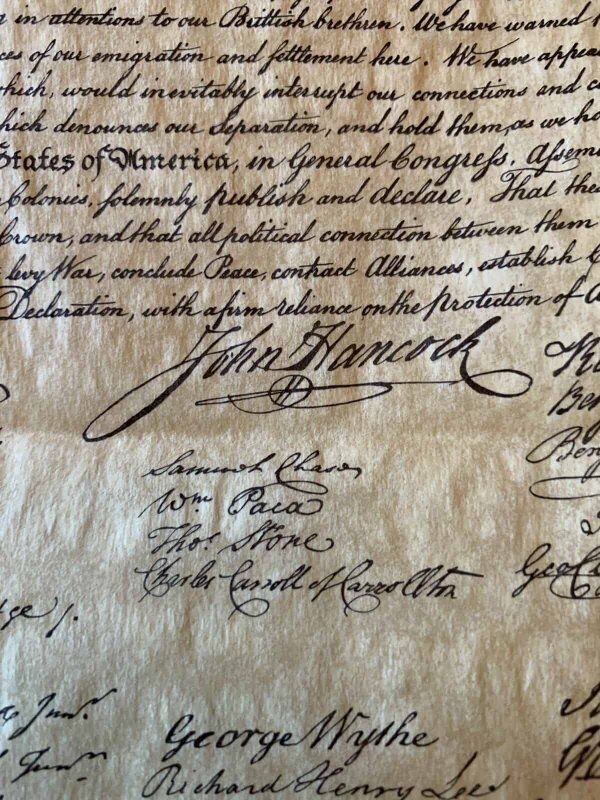 in attentions to our Brittish brethren. We have warned
of our emigration and settlement here. We have
would inevitably interrupt our connections and
denounces our Separation, and hold them, as we
States of America, in General Congress, Assem
Colonies, solemnly publish and declare, That
Crown, and that all political connection between them
levy War, conclude Peace, contract Alliances, establish
Declaration, with a firm reliance on the Protection of
John Hancock
Samuel Chase
Wm Paca
Thos. Stone
Charles Carroll of Carrollton
George Wythe
Richard Henry Lee